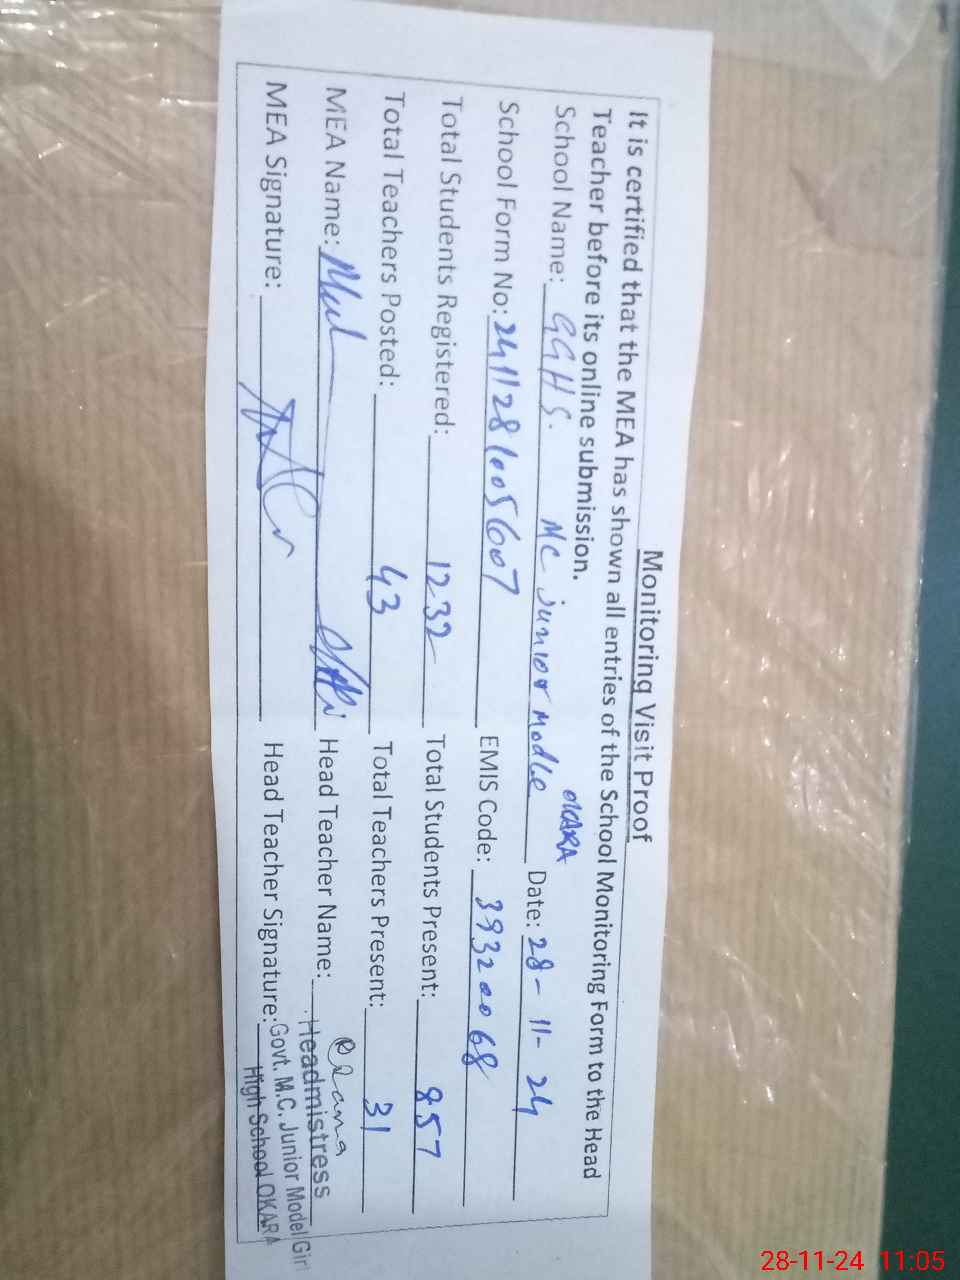 Monitoring Visit Proof
It is certified that the MEA has shown all entries of the School Monitoring Form to the Head
Teacher before its online submission.
OKARA
School Name: GGHS. MC junior modle Date: 28-11-24
School Form No: 241128 EMIS Code: 39320068
Total Students Registered: 1232 Total Students Present: 857
Total Teachers Posted: 43 Total Teachers Present: 31
MEA Name: Head Teacher Name:
Headmistress
MEA Signature: Head Teacher Signature: Govt. M.C. Junior Model Girl
High School OKARA
28-11-24 11:05